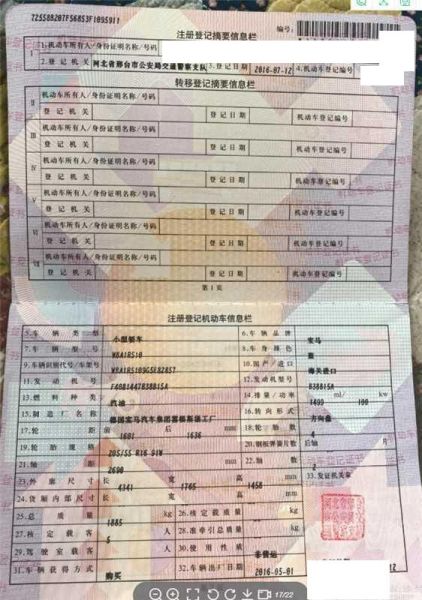 注册登记摘要信息栏
编号:
1.机动车所有人/身份证明名称/号码
2.登记机关 河北省邢台市公安局交通警察支队 3.登记日期 2016-07-12 4.机动车登记编号
转移登记摘要信息栏
II 机动车所有人/身份证明名称/号码
登记机关 登记日期 机动车登记编号
III 机动车所有人/身份证明名称/号码
登记机关 登记日期 机动车登记编号
IV 机动车所有人/身份证明名称/号码
登记机关 登记日期 机动车登记编号
V 机动车所有人/身份证明名称/号码
登记机关 登记日期 机动车登记编号
VI 机动车所有人/身份证明名称/号码
登记机关 登记日期 机动车登记编号
VII 机动车所有人/身份证明名称/号码
登记机关 登记日期 机动车登记编号
第1页
注册登记机动车信息栏
5.车辆类型 小型轿车 6.车辆品牌 宝马
7.车辆型号 WBA1R510 8.车身颜色 蓝
9.车辆识别代号/车架号 10.国产/进口 海关进口
11.发动机号 12.发动机型号 B38B15A
13.燃料种类 汽油 14.排量/功率 1499 ml/ 100 kw
15.制造厂名称 德国宝马汽车集团雷根斯堡工厂 16.转向形式 方向盘
17.轮距 前 后 1636 mm 18.轮胎数
19.轮胎规格 205/55 R16 91W 20.钢板弹簧片数 后轴 片
21.轴距 2690 mm 22.轴数 2
23.外廓尺寸 长 4341 宽 1765 高 1458 mm 33.发证机关章
24.货厢内部尺寸 长 宽 高 mm
25.总质量 1885 kg 26.核定载质量 kg
27.核定载客 5 人 28.准牵引总质量 kg
29.驾驶室载客 人 30.使用性质 非营运
31.车辆获得方式 购买 32.车辆出厂日期 2016-05-01
17/22